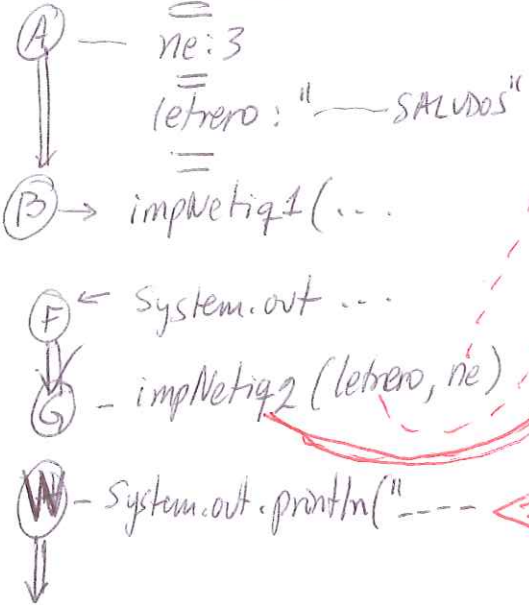 A — ne: 3
letrero: "—— SALUDOS"
B → impNetiq1(...
F ← System.out ...
G - impNetiq2 (letrero, ne)
W - System.out.println("----